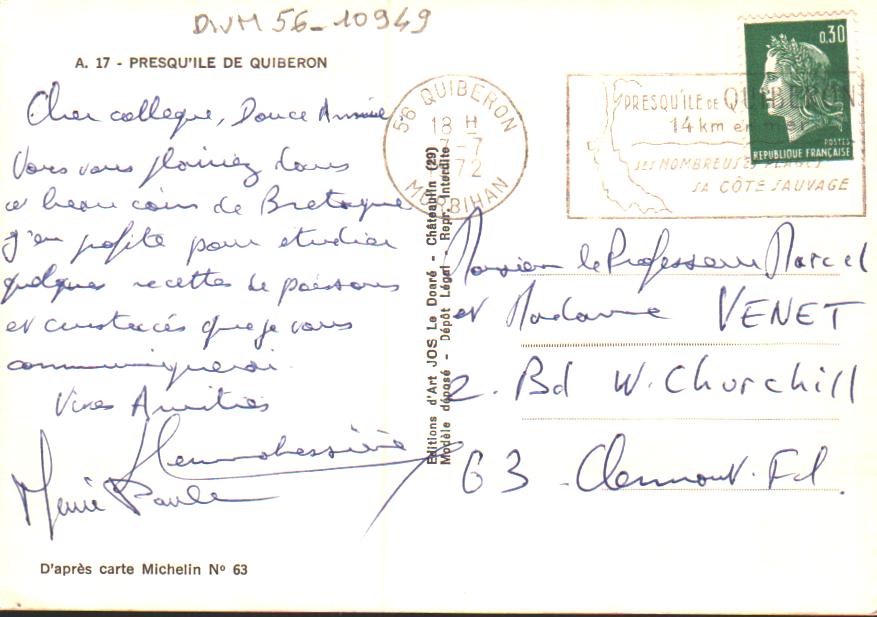 DIVM 56-10949
A. 17 - PRESQU'ILE DE QUIBERON
Cher collègue, Douce Annie
Vous vous plairiez dans
ce beau coin de Bretagne
J'en profite pour étudier
quelques recettes de poissons
et crustacés que je vous
communiquerai.
Vives Amitiés
Marie Paule
D'après carte Michelin Nº 63
56 QUIBERON
18 H
-7
72
MORBIHAN
Editions d'Art JOS Le Doaré - Châteaulin (29)
Modèle déposé - Dépôt Légal - Repr. Interdite
PRESQU'ILE DE QUIBERON
14 km en mer
SES NOMBREUSES PLAGES
SA CÔTE SAUVAGE
0.30
POSTES
REPUBLIQUE FRANÇAISE
Monsieur le Professeur Marcel
et Madame VENET
2. Bd W. Churchill
63 Clermont. Fd.